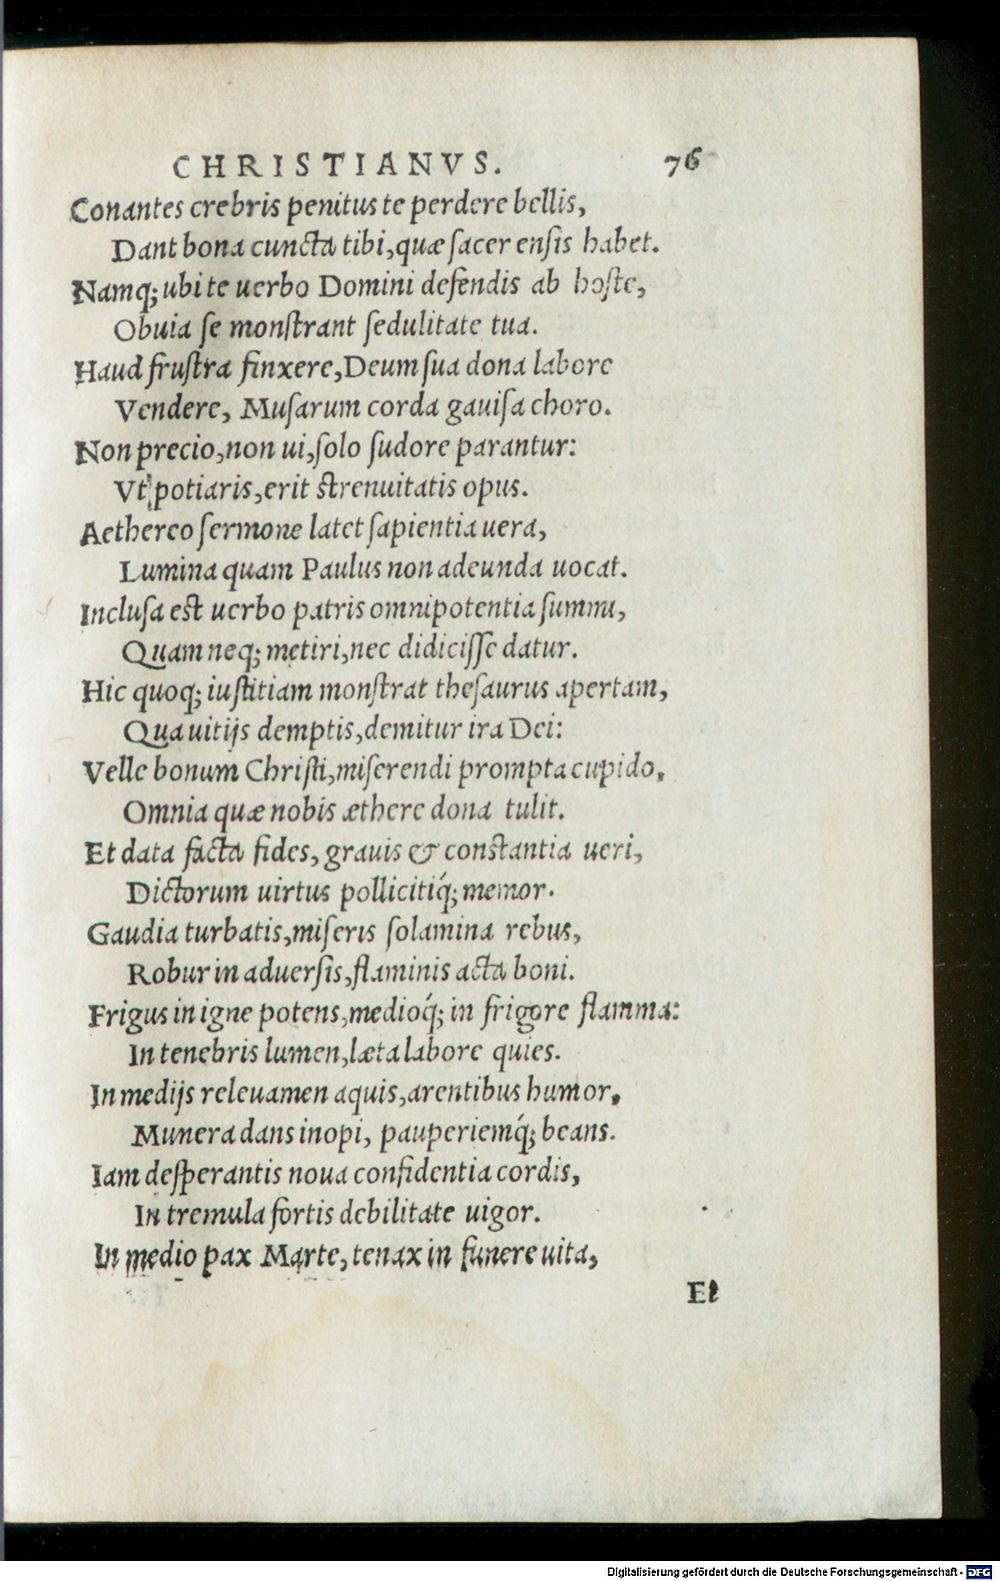 CHRISTIANVS. 76
Conantes crebris penitus te perdere bellis,
Dant bona cuncta tibi, quæ ſacer enſis habet.
Namq; ubi te uerbo Domini defendis ab hoſte,
Obuia ſe monſtrant ſedulitate tua.
Haud fruſtra finxere, Deum ſua dona labore
Vendere, Muſarum corda gauiſa choro.
Non precio, non ui, ſolo ſudore parantur:
Vt potiaris, erit ſtrenuitatis opus.
Aethereo ſermone latet ſapientia uera,
Lumina quam Paulus non adeunda uocat.
Incluſa eſt uerbo patris omnipotentia ſummi,
Quam neq; metiri, nec didiciſſe datur.
Hic quoq; iuſtitiam monſtrat theſaurus apertam,
Qua uitijs demptis, demitur ira Dei:
Velle bonum Chriſti, miſerendi prompta cupido,
Omnia quæ nobis æthere dona tulit.
Et data facta fides, grauis & conſtantia ueri,
Dictorum uirtus pollicitiq́; memor.
Gaudia turbatis, miſeris ſolamina rebus,
Robur in aduerſis, flaminis acta boni.
Frigus in igne potens, medioq́; in frigore flamma:
In tenebris lumen, læta labore quies.
In medijs releuamen aquis, arentibus humor,
Munera dans inopi, pauperiemq́; beans.
Iam deſperantis noua confidentia cordis,
In tremula fortis debilitate uigor.
In medio pax Marte, tenax in funere uita,
Et
Digitalisierung gefördert durch die Deutsche Forschungsgemeinschaft - DFG